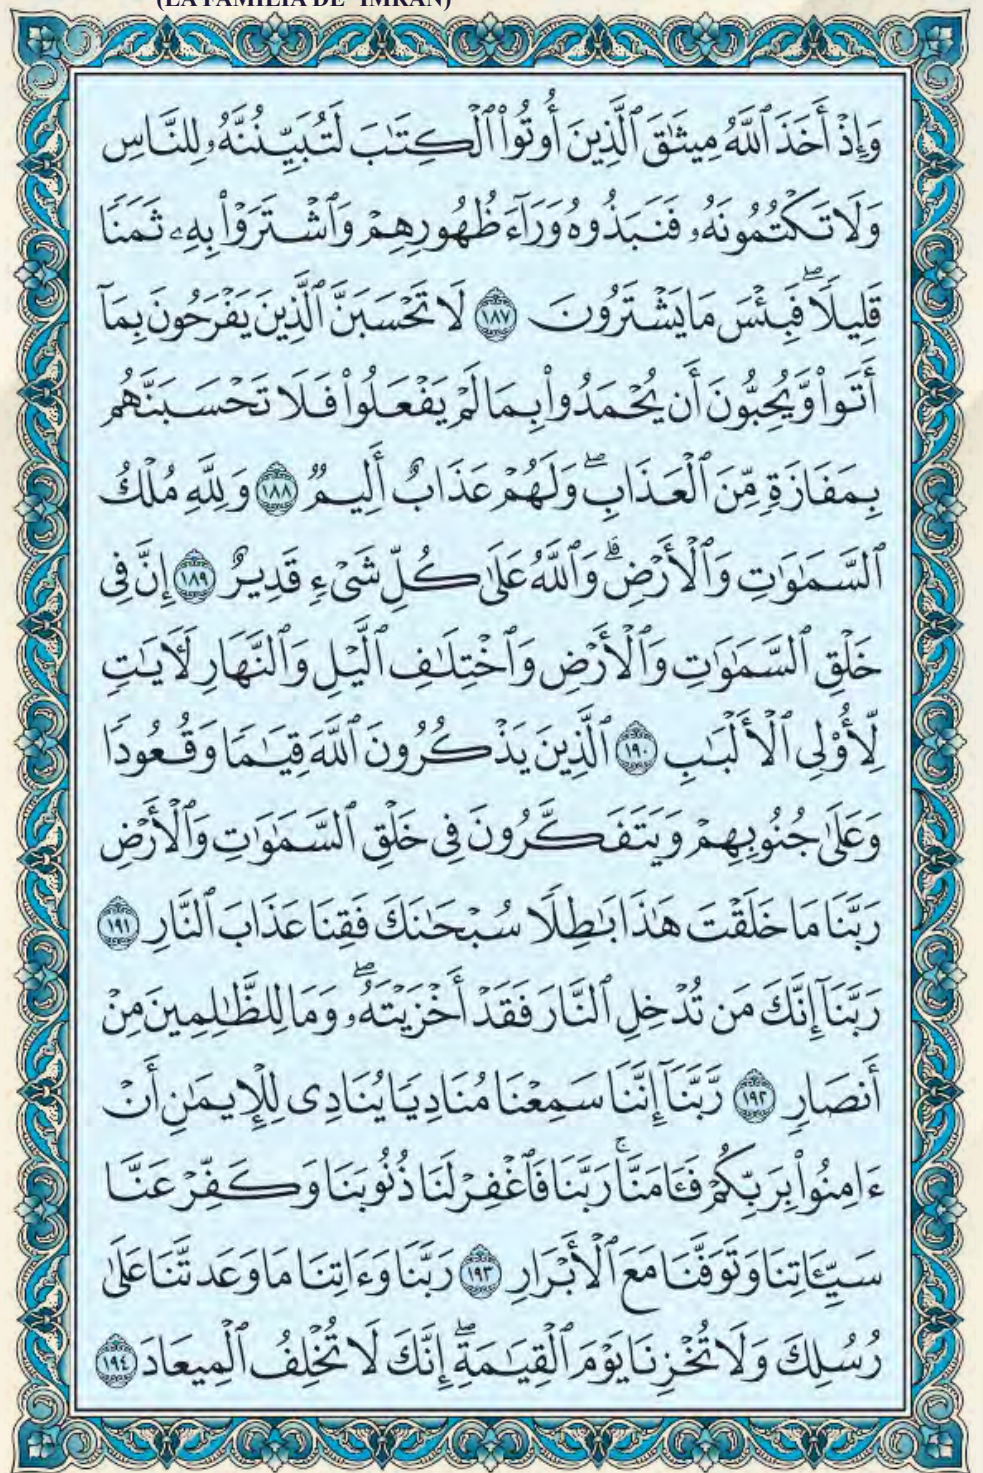 (LA FAMILIA DE ‘IMRÁN)
وَإِذْ أَخَذَ ٱللَّهُ مِيثَٰقَ ٱلَّذِينَ أُوتُوا۟ ٱلْكِتَٰبَ لَتُبَيِّنُنَّهُۥ لِلنَّاسِ
وَلَا تَكْتُمُونَهُۥ فَنَبَذُوهُ وَرَآءَ ظُهُورِهِمْ وَٱشْتَرَوْا۟ بِهِۦ ثَمَنًا
قَلِيلًا ۖ فَبِئْسَ مَا يَشْتَرُونَ ١٨٧ لَا تَحْسَبَنَّ ٱلَّذِينَ يَفْرَحُونَ بِمَآ
أَتَوا۟ وَّيُحِبُّونَ أَن يُحْمَدُوا۟ بِمَا لَمْ يَفْعَلُوا۟ فَلَا تَحْسَبَنَّهُم
بِمَفَازَةٍ مِّنَ ٱلْعَذَابِ ۖ وَلَهُمْ عَذَابٌ أَلِيمٌ ١٨٨ وَلِلَّهِ مُلْكُ
ٱلسَّمَٰوَٰتِ وَٱلْأَرْضِ ۗ وَٱللَّهُ عَلَىٰ كُلِّ شَىْءٍ قَدِيرٌ ١٨٩ إِنَّ فِى
خَلْقِ ٱلسَّمَٰوَٰتِ وَٱلْأَرْضِ وَٱخْتِلَٰفِ ٱلَّيْلِ وَٱلنَّهَارِ لَءَايَٰتٍ
لِّأُو۟لِى ٱلْأَلْبَٰبِ ١٩٠ ٱلَّذِينَ يَذْكُرُونَ ٱللَّهَ قِيَٰمًا وَقُعُودًا
وَعَلَىٰ جُنُوبِهِمْ وَيَتَفَكَّرُونَ فِى خَلْقِ ٱلسَّمَٰوَٰتِ وَٱلْأَرْضِ
رَبَّنَا مَا خَلَقْتَ هَٰذَا بَٰطِلًا سُبْحَٰنَكَ فَقِنَا عَذَابَ ٱلنَّارِ ١٩١
رَبَّنَآ إِنَّكَ مَن تُدْخِلِ ٱلنَّارَ فَقَدْ أَخْزَيْتَهُۥ ۖ وَمَا لِلظَّٰلِمِينَ مِنْ
أَنصَارٍ ١٩٢ رَّبَّنَآ إِنَّنَا سَمِعْنَا مُنَادِيًا يُنَادِى لِلْإِيمَٰنِ أَنْ
ءَامِنُوا۟ بِرَبِّكُمْ فَـَٔامَنَّا ۚ رَبَّنَا فَٱغْفِرْ لَنَا ذُنُوبَنَا وَكَفِّرْ عَنَّا
سَيِّـَٔاتِنَا وَتَوَفَّنَا مَعَ ٱلْأَبْرَارِ ١٩٣ رَبَّنَا وَءَاتِنَا مَا وَعَدتَّنَا عَلَىٰ
رُسُلِكَ وَلَا تُخْزِنَا يَوْمَ ٱلْقِيَٰمَةِ ۖ إِنَّكَ لَا تُخْلِفُ ٱلْمِيعَادَ ١٩٤